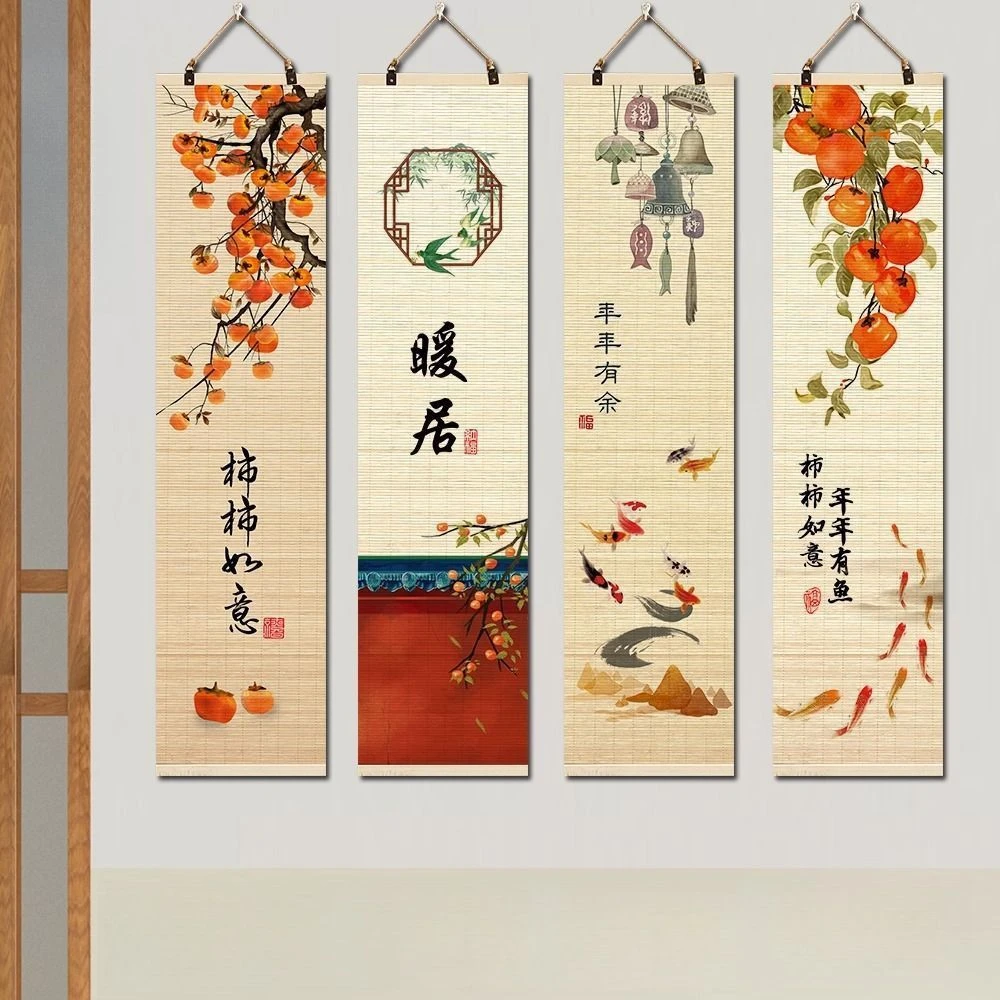 柿柿如意
暖居
年年有余
福
柿柿如意
年年有魚